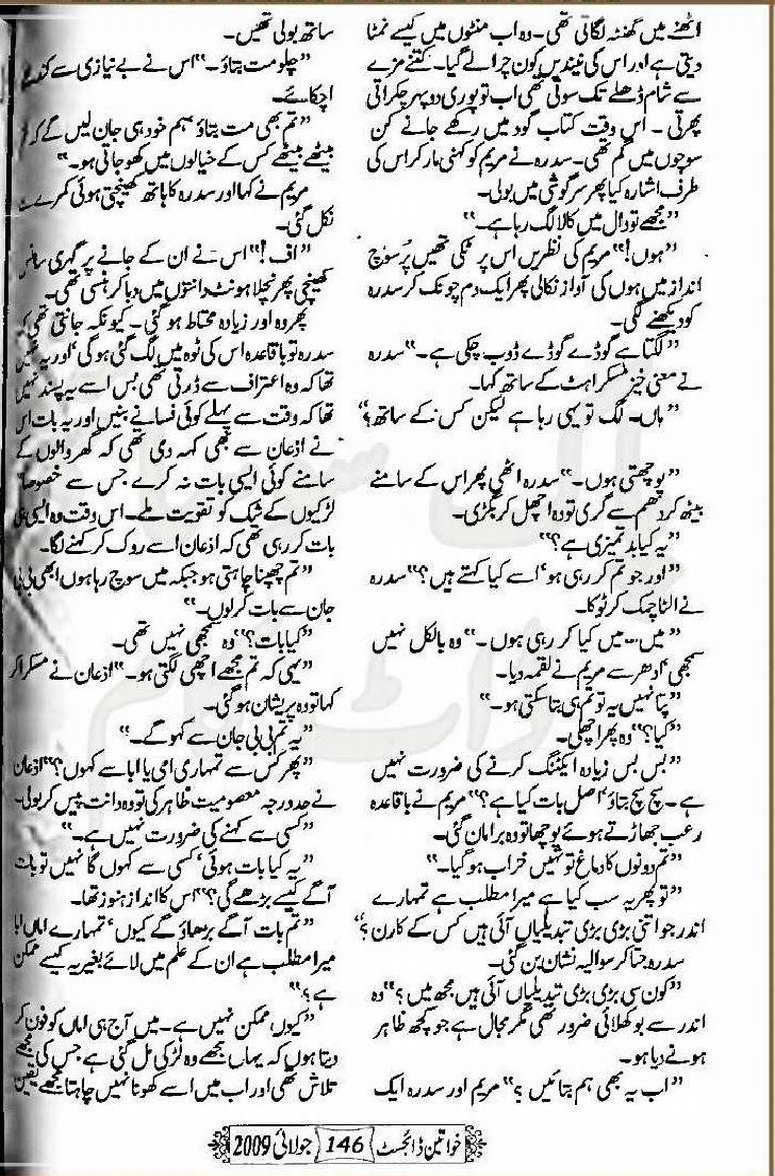 اٹھنے میں گھنٹہ لگاتی تھی۔ وہ اب منٹوں میں کیسے نمٹا
دیتی ہے اور اس کی نیندیں کون چرا لے گیا۔ کتنے مزے
سے شام ڈھلے تک سوتی تھی اب تو پوری دوپہر چکراتی
پھرتی۔ اس وقت کتاب گود میں رکھے جانے کن
سوچوں میں گم تھی۔ سدرہ نے مریم کو کہنی مار کر اس کی
طرف اشارہ کیا پھر سرگوشی میں بولی۔
”مجھے تو دال میں کالا لگ رہا ہے۔“
”ہوں!“ مریم کی نظریں اس پر ٹکی تھیں پُر سوچ
انداز میں ہوں کی آواز نکالی پھر ایک دم چونک کر سدرہ
کو دیکھنے لگی۔
”لگتا ہے گوڈے گوڈے ڈوب چکی ہے۔“ سدرہ
نے معنی خیز مسکراہٹ کے ساتھ کہا۔
”ہاں۔ لگ تو یہی رہا ہے لیکن کس کے ساتھ؟“
”پوچھتی ہوں۔“ سدرہ اٹھی پھر اس کے سامنے
بیٹھ کر دھم سے گری تو وہ اچھل کر بگڑی۔
”یہ کیا بدتمیزی ہے؟“
”اور جو تم کر رہی ہو‘ اسے کیا کہتے ہیں؟“ سدرہ
نے الٹا چمک کر ٹوکا۔
”میں۔۔۔ میں کیا کر رہی ہوں۔“ وہ بالکل نہیں
سمجھی‘ ادھر سے مریم نے لقمہ دیا۔
”پتا نہیں یہ تو تم ہی بتا سکتی ہو۔“
”کیا؟“ وہ پھر اچھلی۔
”بس بس زیادہ ایکٹنگ کرنے کی ضرورت نہیں
ہے۔ سچ سچ بتاؤ‘ اصل بات کیا ہے؟“ مریم نے باقاعدہ
رعب جھاڑتے ہوئے پوچھا تو وہ برا مان گئی۔
”تم دونوں کا دماغ تو نہیں خراب ہو گیا۔“
”تو پھر یہ سب کیا ہے میرا مطلب ہے تمہارے
اندر جو اتنی بڑی بڑی تبدیلیاں آئی ہیں کس کے کارن؟“
سدرہ جتا کر سوالیہ نشان بن گئی۔
”کون سی بڑی بڑی تبدیلیاں آئی ہیں مجھ میں؟“ وہ
اندر سے بوکھلائی ضرور تھی مگر مجال ہے جو کچھ ظاہر
ہونے دیا ہو۔
”اب یہ بھی ہم بتائیں؟“ مریم اور سدرہ ایک
ساتھ بولی تھیں۔
”چلو مت بتاؤ۔“ اس نے بے نیازی سے کندھے
اچکائے۔
”تم بھی مت بتاؤ ہم خود ہی جان لیں گے کہ
بیٹھے بیٹھے کس کے خیالوں میں کھو جاتی ہو۔“
مریم نے کہا اور سدرہ کا ہاتھ کھینچتی ہوئی کمرے سے
نکل گئی۔
”اف!“ اس نے ان کے جانے پر گہری سانس
کھینچی پھر نچلا ہونٹ دانتوں میں دبا کر ہنسی تھی۔
پھر وہ اور زیادہ محتاط ہو گئی۔ کیونکہ جانتی تھی کہ
سدرہ تو باقاعدہ اس کی ٹوہ میں لگ گئی ہوگی‘ اور یہ نہیں
تھا کہ وہ اعتراف سے ڈرتی تھی بس اسے یہ پسند نہیں
تھا کہ وقت سے پہلے کوئی فسانے بنیں اور یہ بات اس
نے اذعان سے بھی کہہ دی تھی کہ گھر والوں کے
سامنے کوئی ایسی بات نہ کرے جس سے خصوصاً
لڑکیوں کے شک کو تقویت ملے۔ اس وقت وہ ایسی ہی
بات کر رہی تھی کہ اذعان اسے روک کر کہنے لگا۔
”تم چھپنا چاہتی ہو جبکہ میں سوچ رہا ہوں ابھی بی بی
جان سے بات کر لوں۔“
”کیا بات؟“ وہ سمجھی نہیں تھی۔
”یہی کہ تم مجھے اچھی لگتی ہو۔“ اذعان نے مسکرا کر
کہا تو وہ پریشان ہو گئی۔
”یہ تم بی بی جان سے کہو گے۔“
”پھر کس سے تمہاری امی یا ابا سے کہوں؟“ اذعان
نے حد درجہ معصومیت ظاہر کی تو وہ دانت پیس کر بولی۔
”کسی سے کہنے کی ضرورت نہیں ہے۔“
”یہ کیا بات ہوئی‘ کسی سے کہوں گا نہیں تو بات
آگے کیسے بڑھے گی؟“ اس کا انداز ہنوز تھا۔
”تم بات آگے بڑھاؤ گے کیوں‘ تمہارے اماں ابا
میرا مطلب ہے ان کے علم میں لائے بغیر یہ کیسے ممکن
ہے؟“
”کیوں ممکن نہیں ہے۔ میں آج ہی اماں کو فون کر
دیتا ہوں کہ یہاں مجھے وہ لڑکی مل گئی ہے جس کی مجھے
تلاش تھی اور اب میں اسے کھونا نہیں چاہتا مجھے یقین
خواتین ڈائجسٹ 146 جولائی 2009